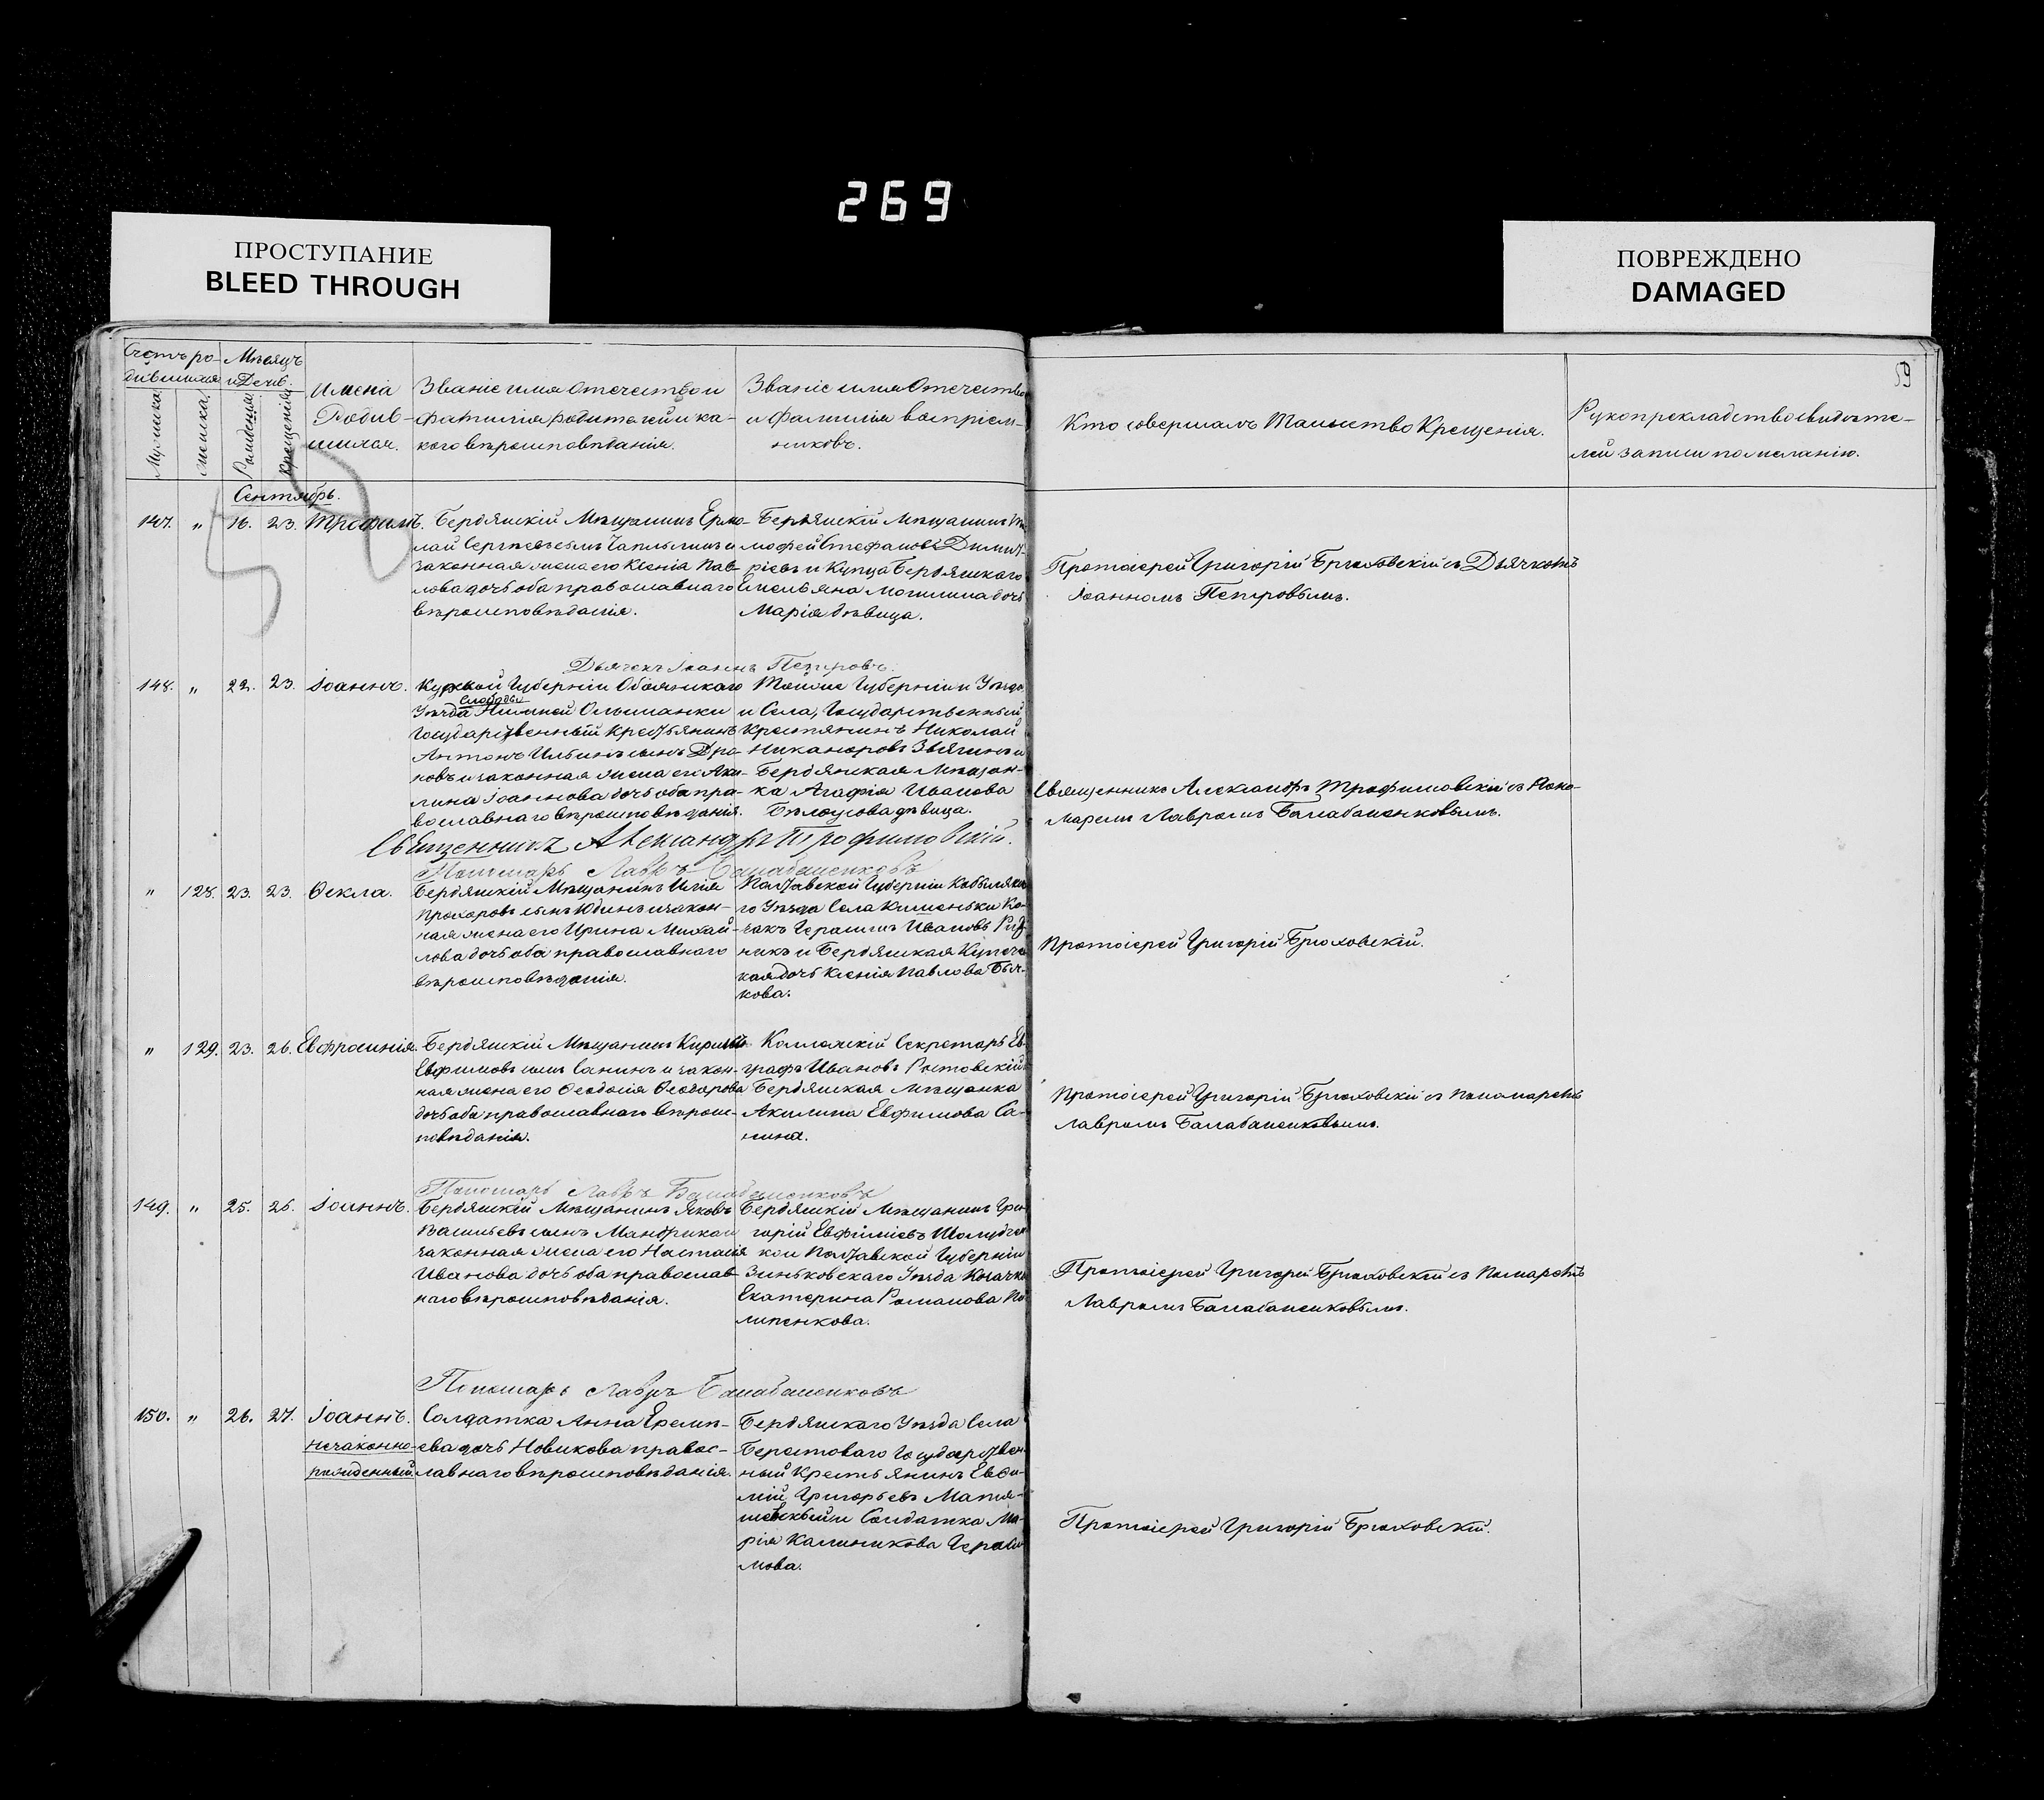 269
ПРОСТУПАНИЕ
BLEED THROUGH
ПОВРЕЖДЕНО
DAMAGED
59
Счетъ ро-
дившихся
Мужеска.
Женска.
Мѣсяцъ
и День.
Рожденія
Крещенія
Имена
Родив-
шихся.
Званіе имя Отечество и
фамилія родителей и ка-
кого вѣроисповѣданія.
Званіе имя Отечество
и фамилія воспріем-
никовъ.
Кто совершалъ Таинство Крещенія.
Рукоприкладство свидѣте-
лей записи по желанію.
Сентябрь.
147. " 16. 23. Трофимъ.
Бердянскій Мѣщанинъ Ермо-
лай Сергѣевъ сынъ Чаплыгинъ и
законная жена его Ксенія Пав-
лова дочь оба православнаго
вѣроисповѣданія.
Бердянскій Мѣщанинъ Ти
мофей Стефановъ Димит-
ріевъ и Купца Бердянскаго
Емельяна Могилина дочь
Марія дѣвица.
Протоіерей Григорій Брюховскій съ Дьячкомъ
Іоанномъ Петровымъ.
Дьячекъ Іоаннъ Петровъ.
148. " 22. 23. Іоаннъ.
Курской Губерніи Обоянскаго
Уѣзда Слободы Нижней Ольшанки
Государственный Крестьянинъ
Антонъ Ильинъ сынъ Дро-
новъ и законная жена его Аку-
лина Іоаннова дочь оба пра-
вославнаго вѣроисповѣданія.
Тойже Губерніи и Уѣзда
и Села, Государственный
Крестьянинъ Николай
Никаноровъ Звягинъ и
Бердянская Мѣщан-
ка Агафія Иванова
Бѣлоусова дѣвица.
Священникъ Александръ Трофимовскій съ Поно-
маремъ Лавромъ Балабаненковымъ.
Священникъ Александръ Трофимовскій.
Пономарь Лавръ Балабаненковъ
" 128. 23. 23. Ѳекла.
Бердянскій Мѣщанинъ Илія
Прохоровъ сынъ Юдинъ и закон-
ная жена его Ирина Михай-
лова дочь оба православнаго
вѣроисповѣданія.
Полтавской Губерніи Кобыляка
го Уѣзда Села Кишеньки Ко-
закъ Герасимъ Ивановъ
никъ и Бердянская Купече
кая дочь Ксенія Павлова Быч-
кова.
Протоіерей Григорій Брюховскій.
" 129. 23. 26. Евфросинія.
Бердянскій Мѣщанинъ Кириллъ
Евфимовъ сынъ Санинъ и закон-
ная жена его Ѳеодосія Ѳеодорова
дочь оба православнаго вѣроис-
повѣданія.
Коллежскій Секретарь Ев-
графъ Ивановъ Ростовскій
Бердянская Мѣщанка
Акилина Евфимова Са-
нина.
Протоіерей Григорій Брюховскій съ Пономаремъ
Лавромъ Балабаненковымъ.
Пономарь Лавръ Балабаненковъ
149. " 25. 26. Іоаннъ.
Бердянскій Мѣщанинъ Яковъ
Васильевъ сынъ Мандрика и
законная жена его Настасія
Иванова дочь оба православ
наго вѣроисповѣданія.
Бердянскій Мѣщанинъ Гри-
горій Евфиміевъ
Полтавской Губерніи
Зиньковскаго Уѣзда Козачка
Екатерина Романова Пи
липенкова.
Протоіерей Григорій Брюховскій съ Помаремъ
Лавромъ Балабаненковымъ.
Пономарь Лавръ Балабаненковъ
150. " 26. 27. Іоаннъ.
незаконно-
рожденный
Солдатка Анна Ереми-
ева дочь Новикова правос-
лавнаго вѣроисповѣданія.
Бердянскаго Уѣзда Села
Берестоваго Государствен-
ный Крестьянинъ Евѳи-
мій Григорьевъ
и Солдатка Ма-
рія Калиникова Гераси
мова.
Протоіерей Григорій Брюховскій.